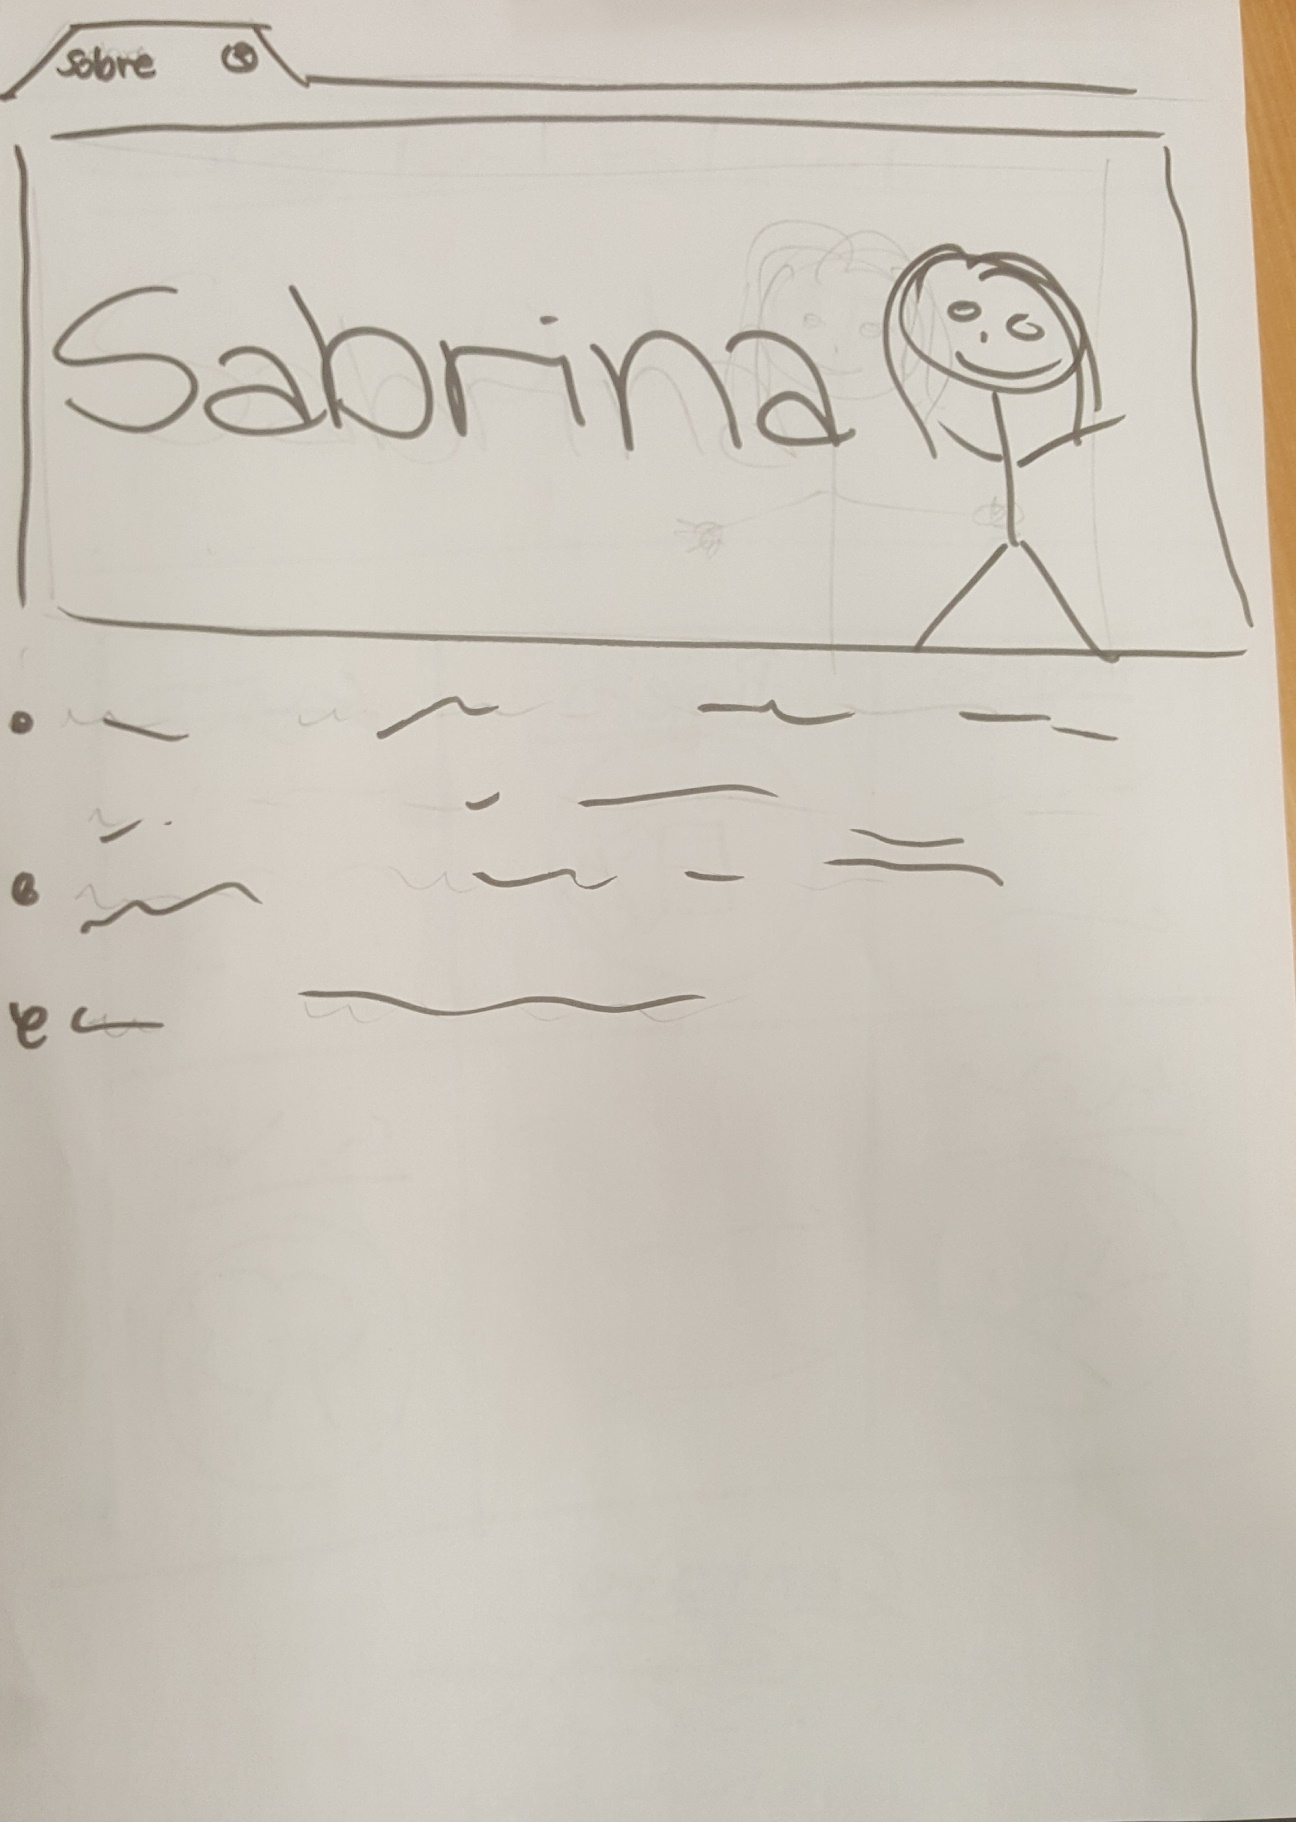 Sobre
Sabrina